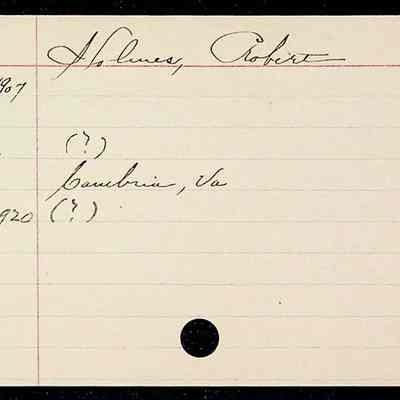 Holmes, Robert
907
(?)
Cambria, Va
920 (?)